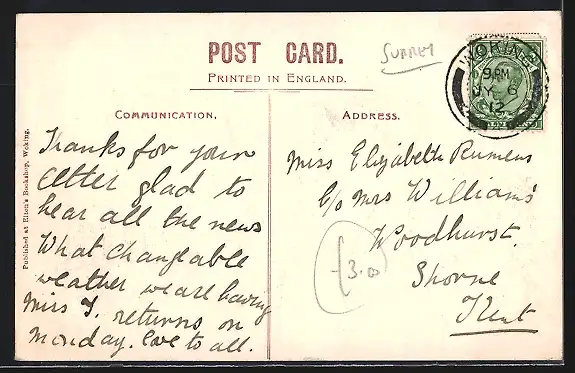 POST CARD.
PRINTED IN ENGLAND.
Surrey
WOKING
9 PM
JY 6
12
COMMUNICATION.
ADDRESS.
Published at Elton's Bookshop, Woking.
Thanks for your
letter glad to
hear all the news
What changeable
weather we are having
Miss J. returns on
Monday. love to all.
Miss Elizabeth Rumens
C/o Mrs Williams
Woodhurst.
Shorne
Kent
3.00